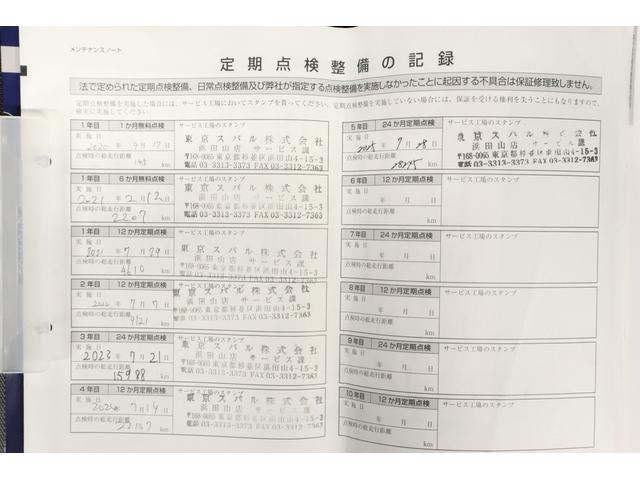 メンテナンスノート
定期点検整備の記録
法で定められた定期点検整備、日常点検整備及び弊社が指定する点検整備を実施しなかったことに起因する不具合は保証修理致しません。
定期点検整備を実施した場合には、サービス工場においてスタンプを貰ってください。定期点検整備を実施していない場合には、保証を受ける権利を失うことにもなりますので、
確実に実施してください。
1年目 1か月無料点検 サービス工場のスタンプ
実施日 2020年9月17日
点検時の総走行距離
143 km
東京スバル株式会社
浜田山店 サービス課
〒168-0065 東京都杉並区浜田山4-15-3
電話 03-3313-3373 FAX 03-3312-7363
1年目 6か月無料点検 サービス工場のスタンプ
実施日 2021年2月12日
点検時の総走行距離
2207 km
東京スバル株式会社
浜田山店 サービス課
〒168-0065 東京都杉並区浜田山4-15-3
電話 03-3313-3373 FAX 03-3312-7363
1年目 12か月定期点検 サービス工場のスタンプ
実施日 2021年7月29日
点検時の総走行距離
4610 km
東京スバル株式会社
浜田山店 サービス課
〒168-0065 東京都杉並区浜田山4-15-3
電話 03-3313-3373 FAX 03-3312-7363
2年目 12か月定期点検 サービス工場のスタンプ
実施日 2022年7月7日
点検時の総走行距離
9121 km
東京スバル株式会社
浜田山店 サービス課
〒168-0065 東京都杉並区浜田山4-15-3
電話 03-3313-3373 FAX 03-3312-7363
3年目 24か月定期点検 サービス工場のスタンプ
実施日 2023年7月21日
点検時の総走行距離
15988 km
東京スバル株式会社
浜田山店 サービス課
〒168-0065 東京都杉並区浜田山4-15-3
電話 03-3313-3373 FAX 03-3312-7363
4年目 12か月定期点検 サービス工場のスタンプ
実施日 2024年7月14日
点検時の総走行距離
km
東京スバル株式会社
浜田山店 サービス課
〒168-0065 東京都杉並区浜田山4-15-3
電話 03-3313-3373 FAX 03-3312-7363
5年目 24か月定期点検 サービス工場のスタンプ
実施日 2025年7月28日
点検時の総走行距離
km
東京スバル株式会社
浜田山店 サービス課
〒168-0065 東京都杉並区浜田山4-15-3
電話 03-3313-3373 FAX 03-3312-7363
6年目 12か月定期点検 サービス工場のスタンプ
実施日 年 月 日
点検時の総走行距離
km
7年目 24か月定期点検 サービス工場のスタンプ
実施日 年 月 日
点検時の総走行距離
km
8年目 12か月定期点検 サービス工場のスタンプ
実施日 年 月 日
点検時の総走行距離
km
9年目 24か月定期点検 サービス工場のスタンプ
実施日 年 月 日
点検時の総走行距離
km
10年目 12か月定期点検 サービス工場のスタンプ
実施日 年 月 日
点検時の総走行距離
km